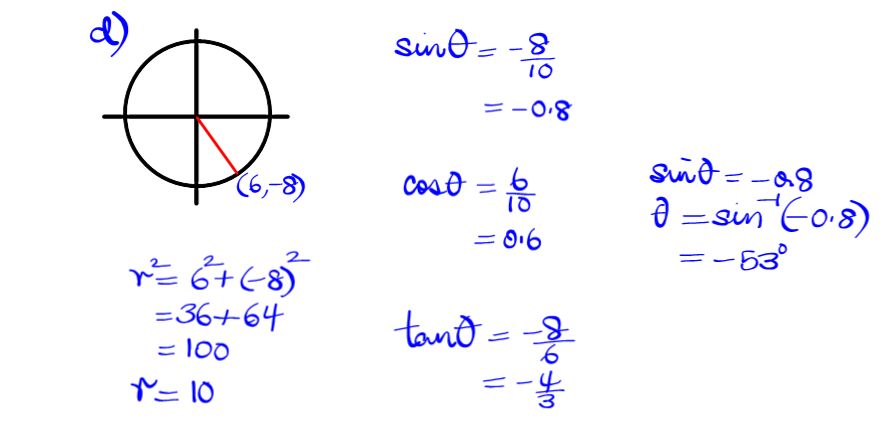 d)
(6,-8)
r² = 6² + (-8)²
= 36 + 64
= 100
r = 10
sinθ = -8/10
= -0.8
cosθ = 6/10
= 0.6
tanθ = -8/6
= -4/3
sinθ = -0.8
θ = sin⁻¹(-0.8)
= -53°